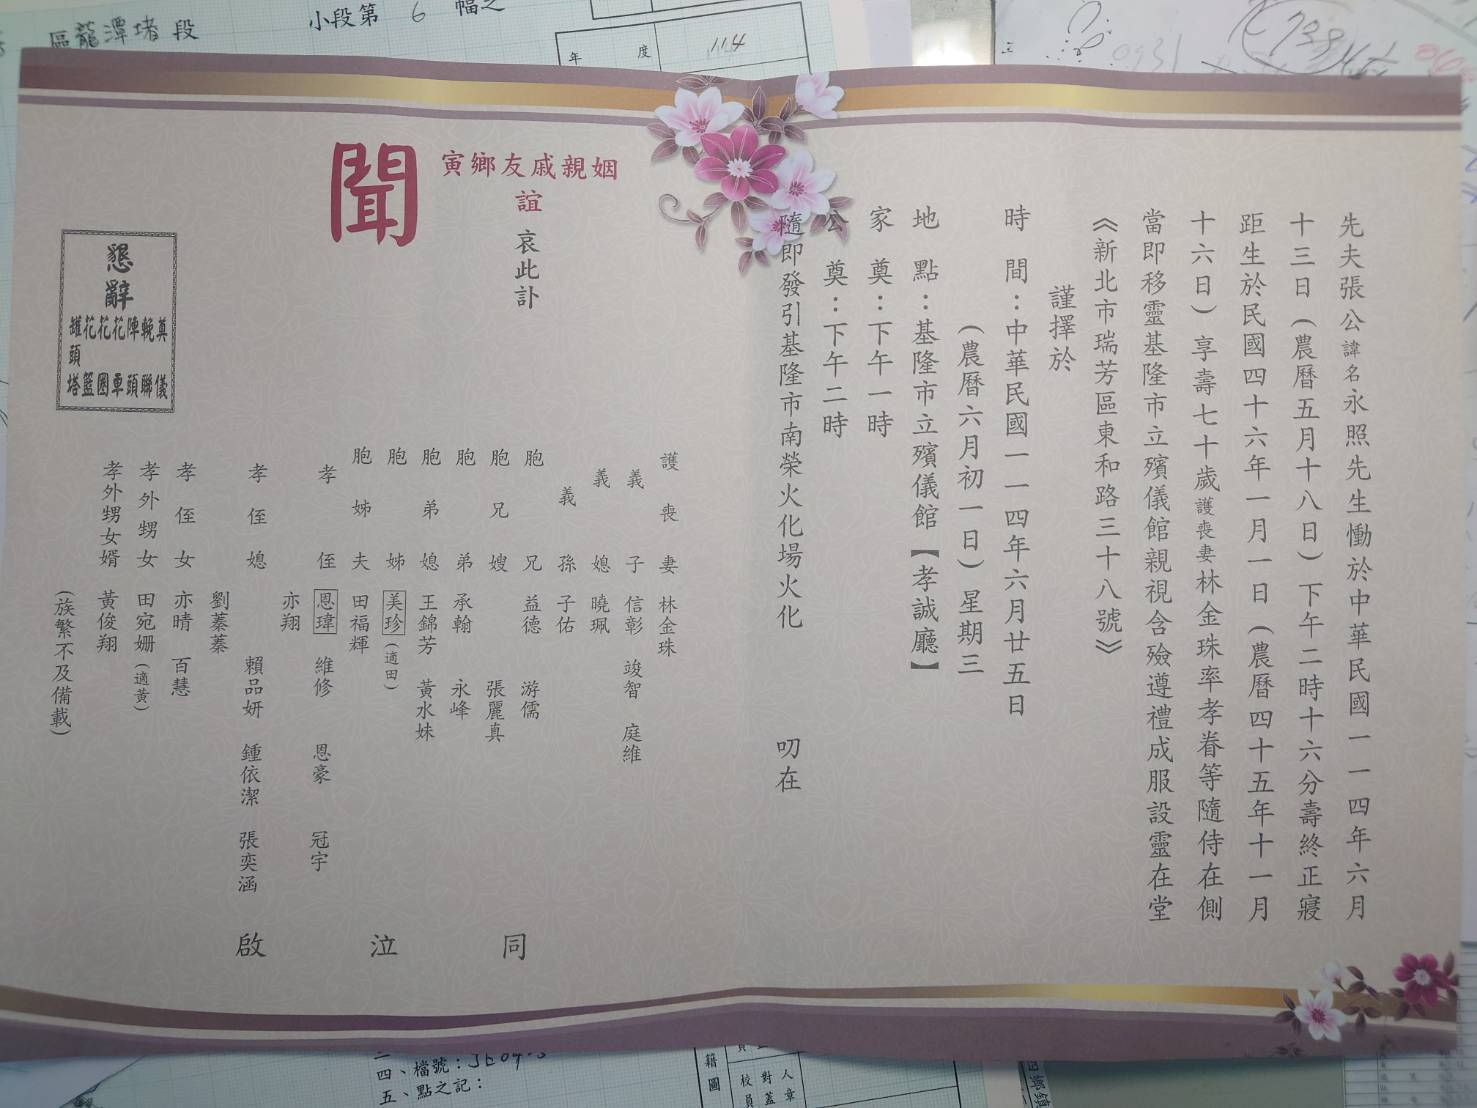 先夫張公諱名永照先生慟於中華民國一一四年六月
十三日(農曆五月十八日)下午二時十六分壽終正寢
距生於民國四十六年一月一日(農曆四十五年十一月
十六日)享壽七十歲護喪妻林金珠率孝眷等隨侍在側
當即移靈基隆市立殯儀館親視含殮遵禮成服設靈在堂
《新北市瑞芳區東和路三十八號》
謹擇於
時 間:中華民國一一四年六月廿五日
(農曆六月初一日)星期三
地 點:基隆市立殯儀館【孝誠廳】
家 奠:下午一時
公 奠:下午二時
隨即發引基隆市南榮火化場火化 叨在
姻親戚友鄉寅
誼
哀此訃
聞
護喪妻 林金珠
義子 信彰 竣智 庭維
義媳 曉珮
義孫 子佑
胞兄 益德 游儒
胞兄嫂 張麗真
胞弟 承翰 永峰
胞弟媳 王錦芳 黃水妹
胞姊 美珍(適田)
胞姊夫 田福輝
孝侄 恩瑋 維修 恩豪 冠宇
亦翔
孝侄媳 賴品妍 鍾依潔 張奕涵
劉蓁蓁
孝侄女 亦晴 百慧
孝外甥女 田宛姍(適黃)
孝外甥女婿 黃俊翔
(族繁不及備載)
同 泣 啟
懇辭
奠儀
輓聯
陣頭
花車
花圈
花籃
罐頭塔
區龍潭堵段
小段第 6 幅之
年 度 114
0931
四、檔號:
五、點之記:
籍圖